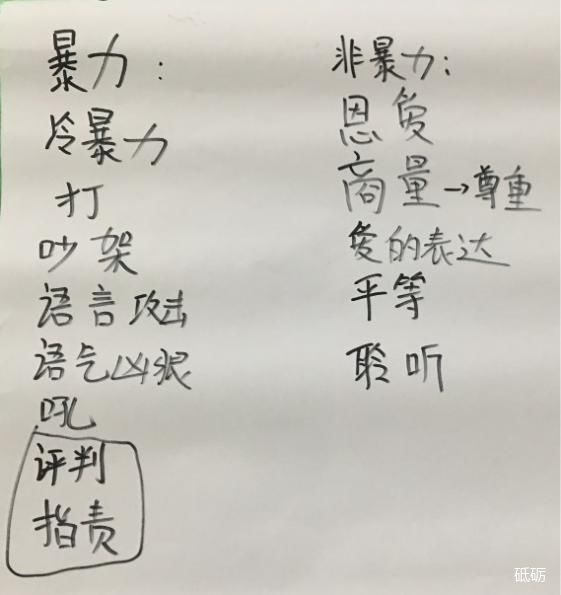 暴力：
冷暴力
打
吵架
语言攻击
语气凶狠
吼
评判
指责
非暴力：
恩爱
商量→尊重
爱的表达
平等
聆听
砥砺